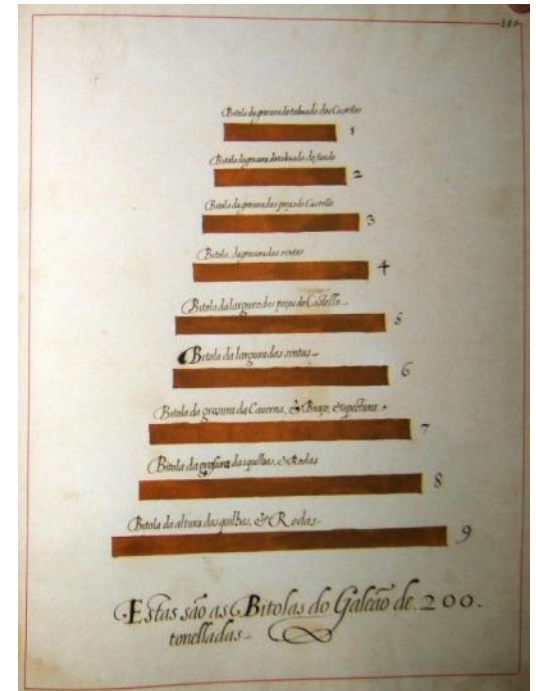 Bitola da grosura do taboado dos Castellos
1
Bitola da grosura do taboado do fundo
2
Bitola da grosura das peças do Castello
3
Bitola da grosura das sintas
4
Bitola da largura das peças do Castello
5
Bitola da largura das sintas
6
Bitola da grosura da Caverna, & Braço, & apostura
7
Bitola da grosura das quilhas, & Rodas
8
Bitola da altura das quilhas, & Rodas
9
Estas são as Bitolas do Galeão de 200.
tonelladas